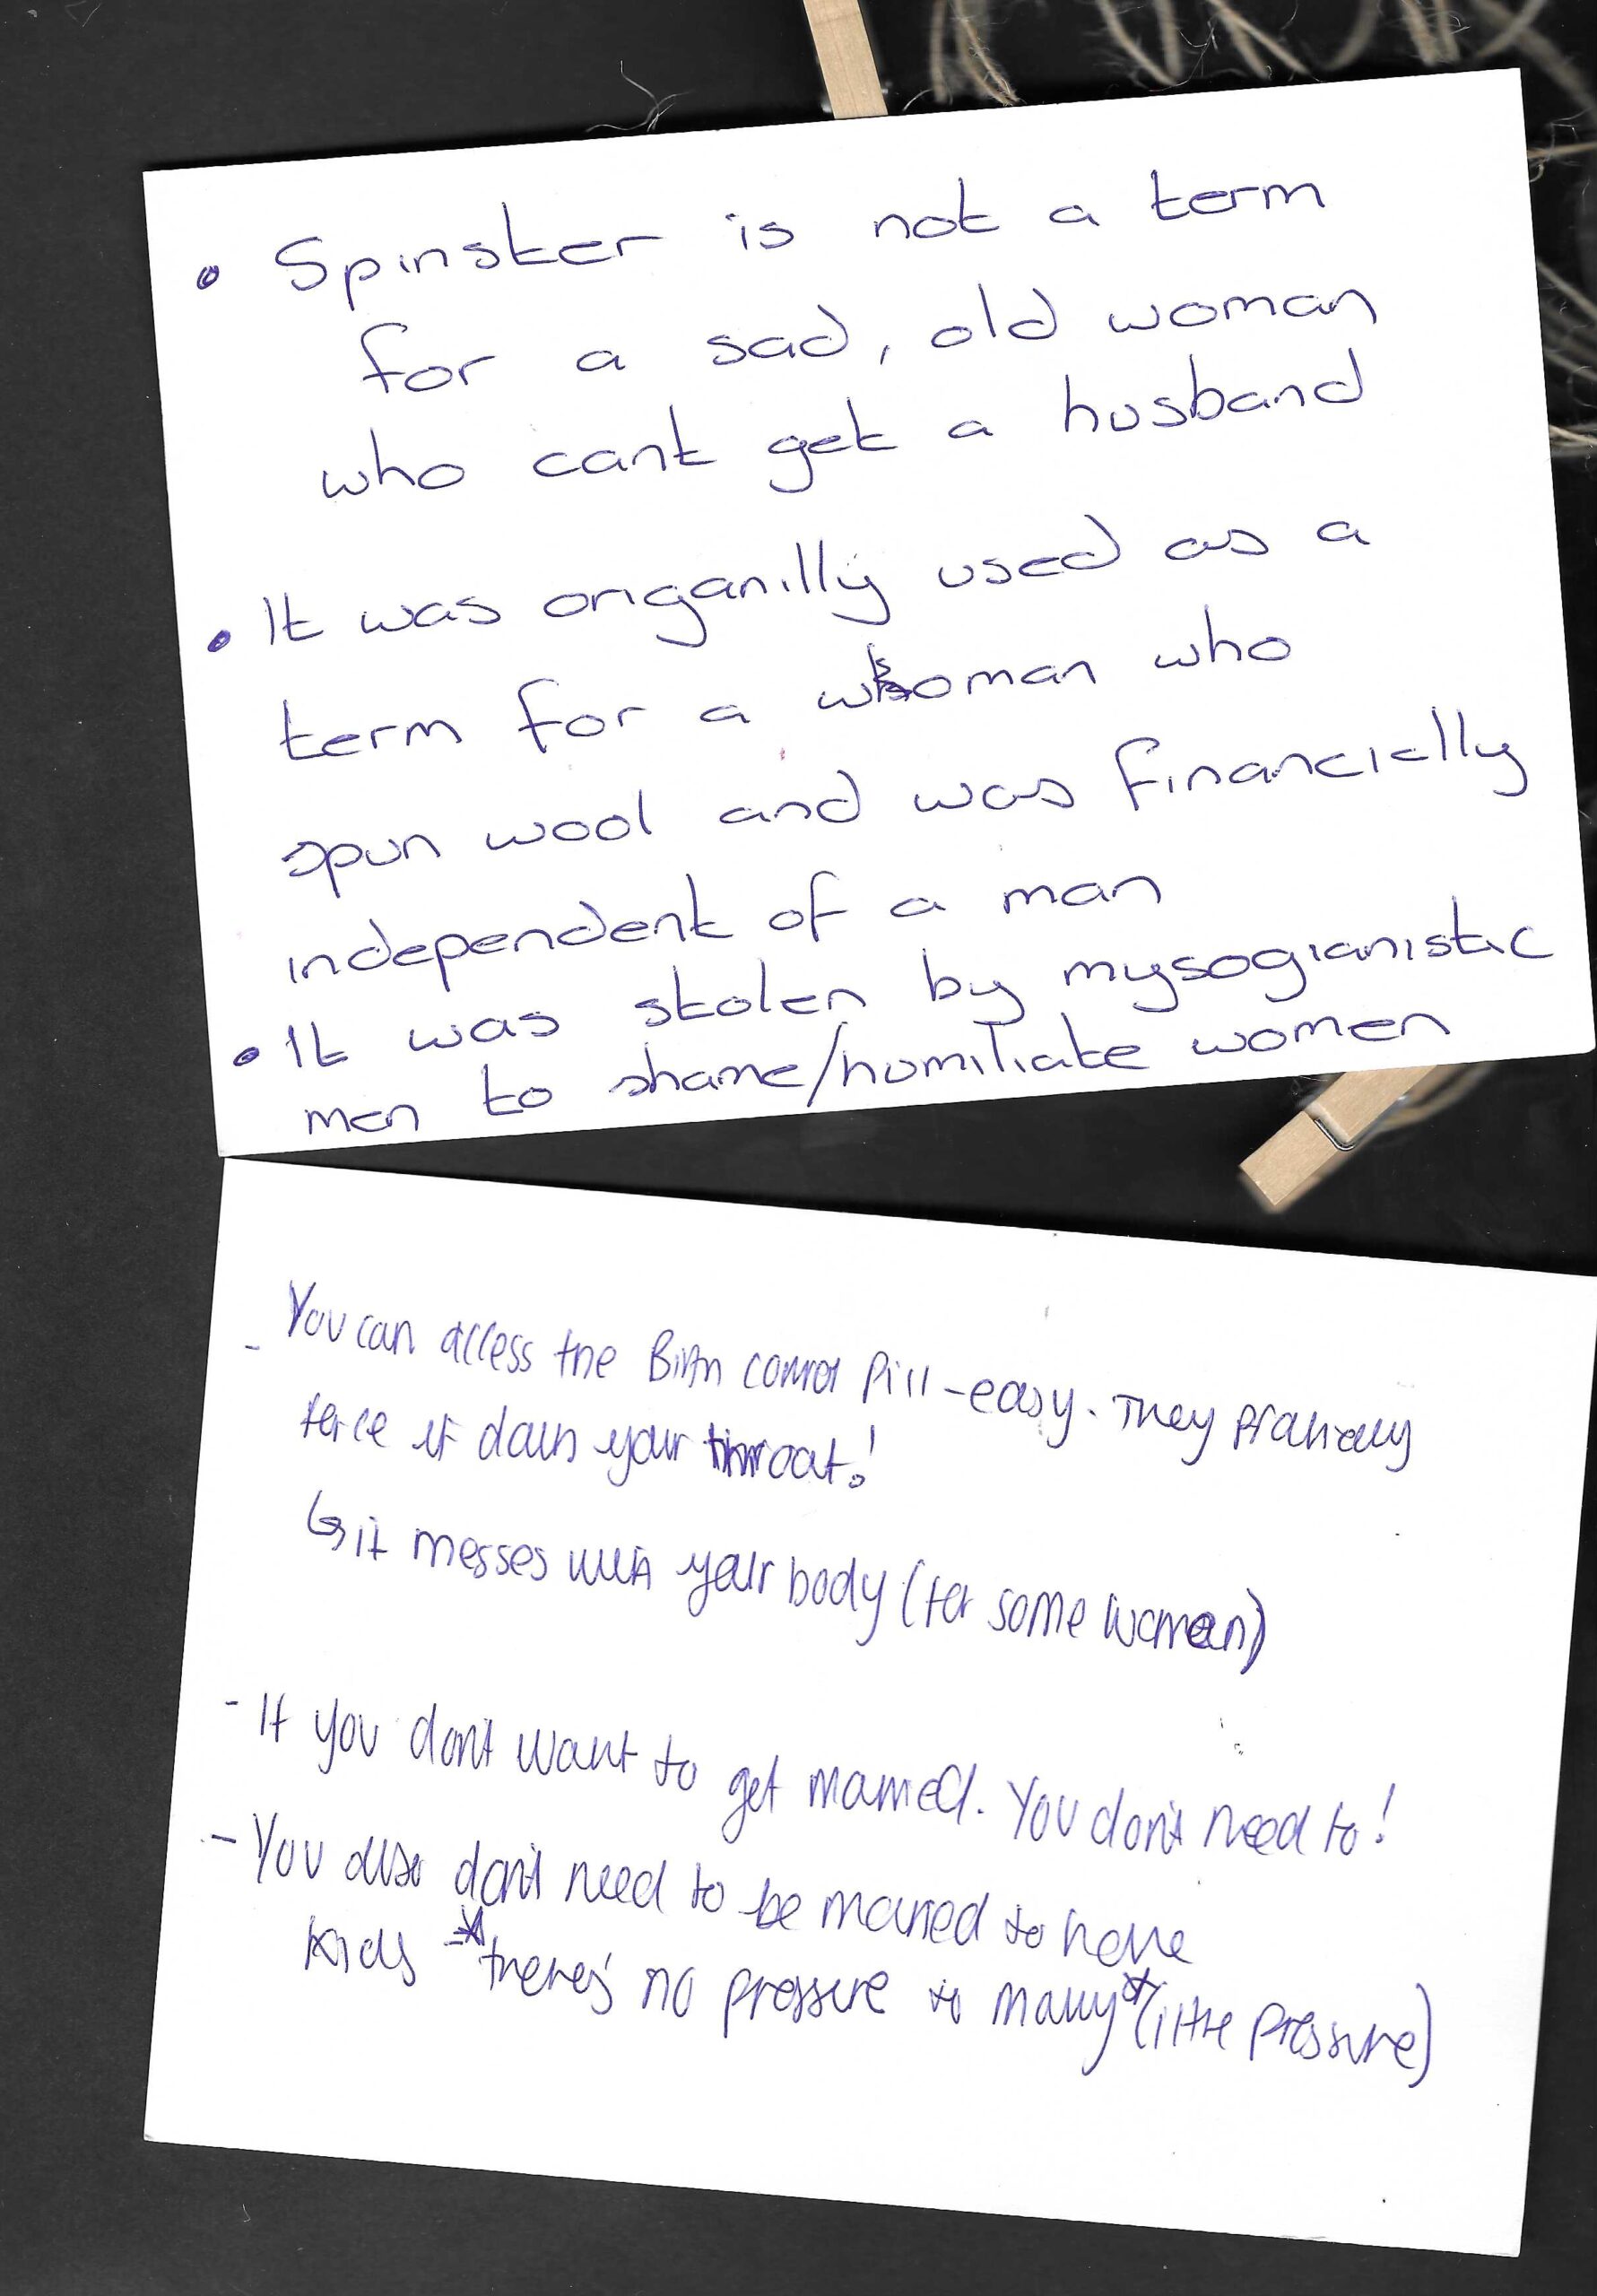 • Spinster is not a term
for a sad, old woman
who cant get a husband
• It was origanilly used as a
term for a woman who
spun wool and was financially
independent of a man
• It was stolen by mysogianistic
men to shame/humiliate women
- You can access the Birth control Pill - easy. They practically
force it down your throat!
↳ it messes with your body (for some women)
- If you don't want to get married. You don't need to!
- You also don't need to be married to have
kids * there's no pressure to marry * (little pressure)